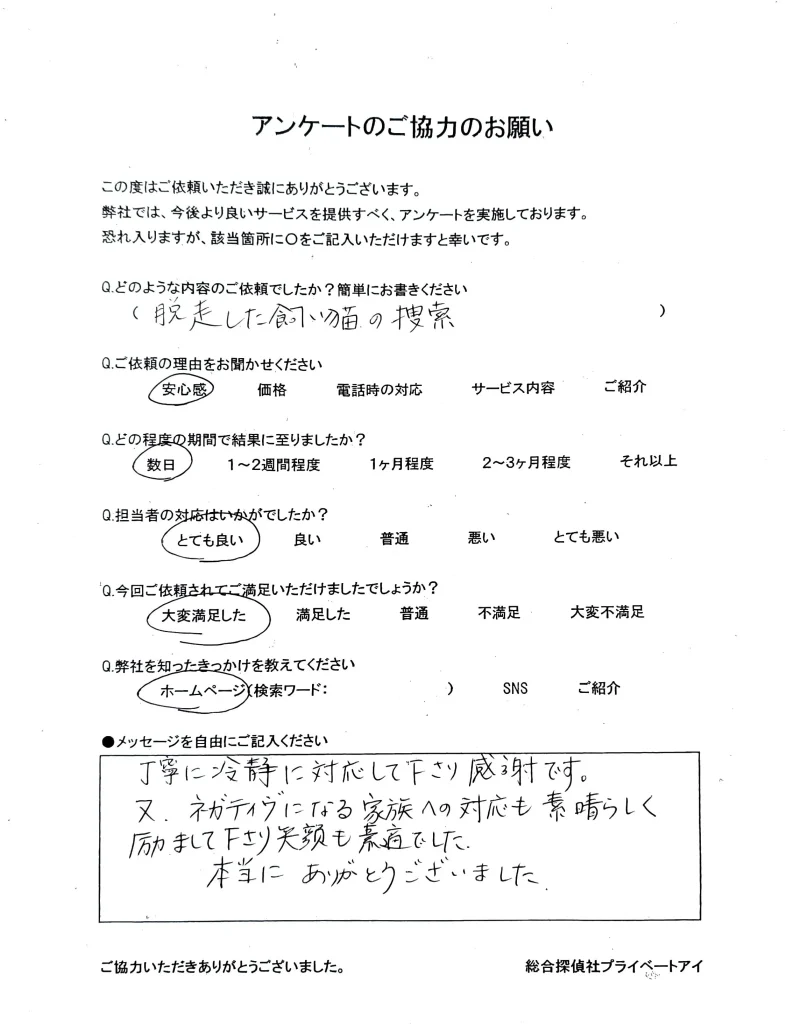 アンケートのご協力のお願い
この度はご依頼いただき誠にありがとうございます。
弊社では、今後より良いサービスを提供すべく、アンケートを実施しております。
恐れ入りますが、該当箇所に〇をご記入いただけますと幸いです。
Q.どのような内容のご依頼でしたか？簡単にお書きください
（ 脱走した飼い猫の捜索 ）
Q.ご依頼の理由をお聞かせください
安心感 価格 電話時の対応 サービス内容 ご紹介
Q.どの程度の期間で結果に至りましたか？
数日 1～2週間程度 1ヶ月程度 2～3ヶ月程度 それ以上
Q.担当者の対応はいかがでしたか？
とても良い 良い 普通 悪い とても悪い
Q.今回ご依頼されてご満足いただけましたでしょうか？
大変満足した 満足した 普通 不満足 大変不満足
Q.弊社を知ったきっかけを教えてください
ホームページ（検索ワード： ） SNS ご紹介
●メッセージを自由にご記入ください
丁寧に冷静に対応して下さり感謝です。
又、ネガティヴになる家族への対応も素晴らしく
励まして下さり笑顔も素適でした。
本当に ありがとうございました。
ご協力いただきありがとうございました。
総合探偵社プライベートアイ